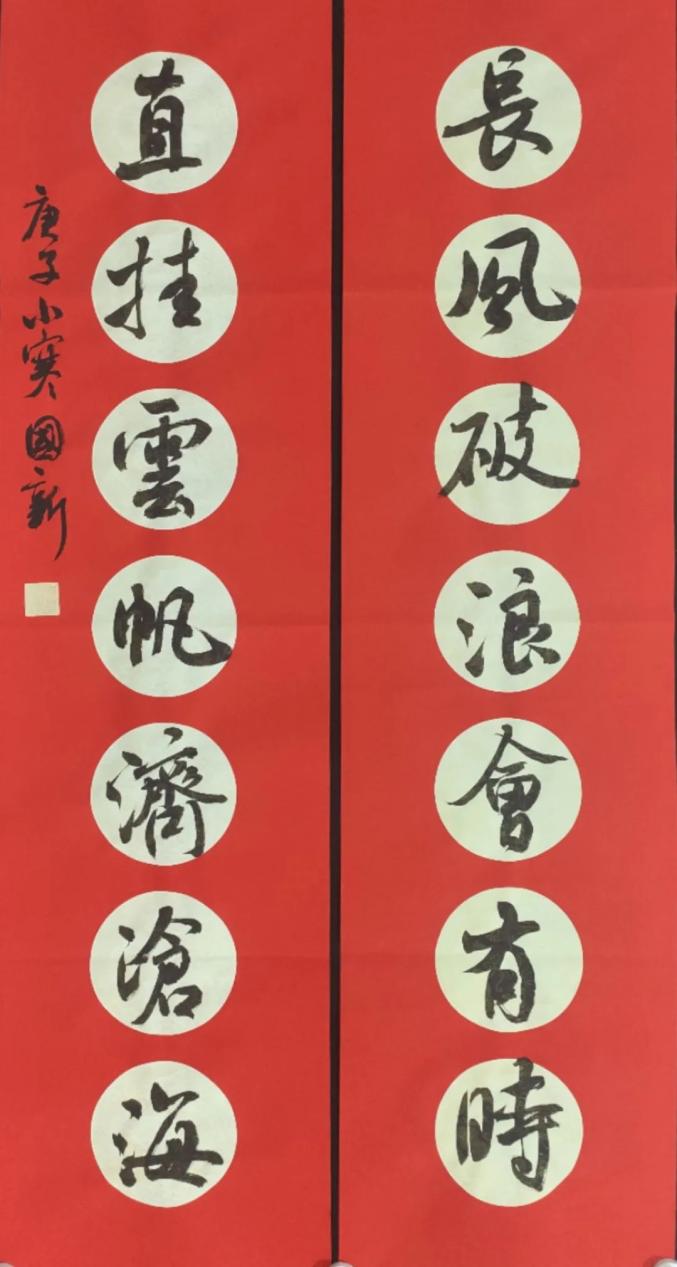 長風破浪會有時
直挂雲帆濟滄海
庚子小寒國新